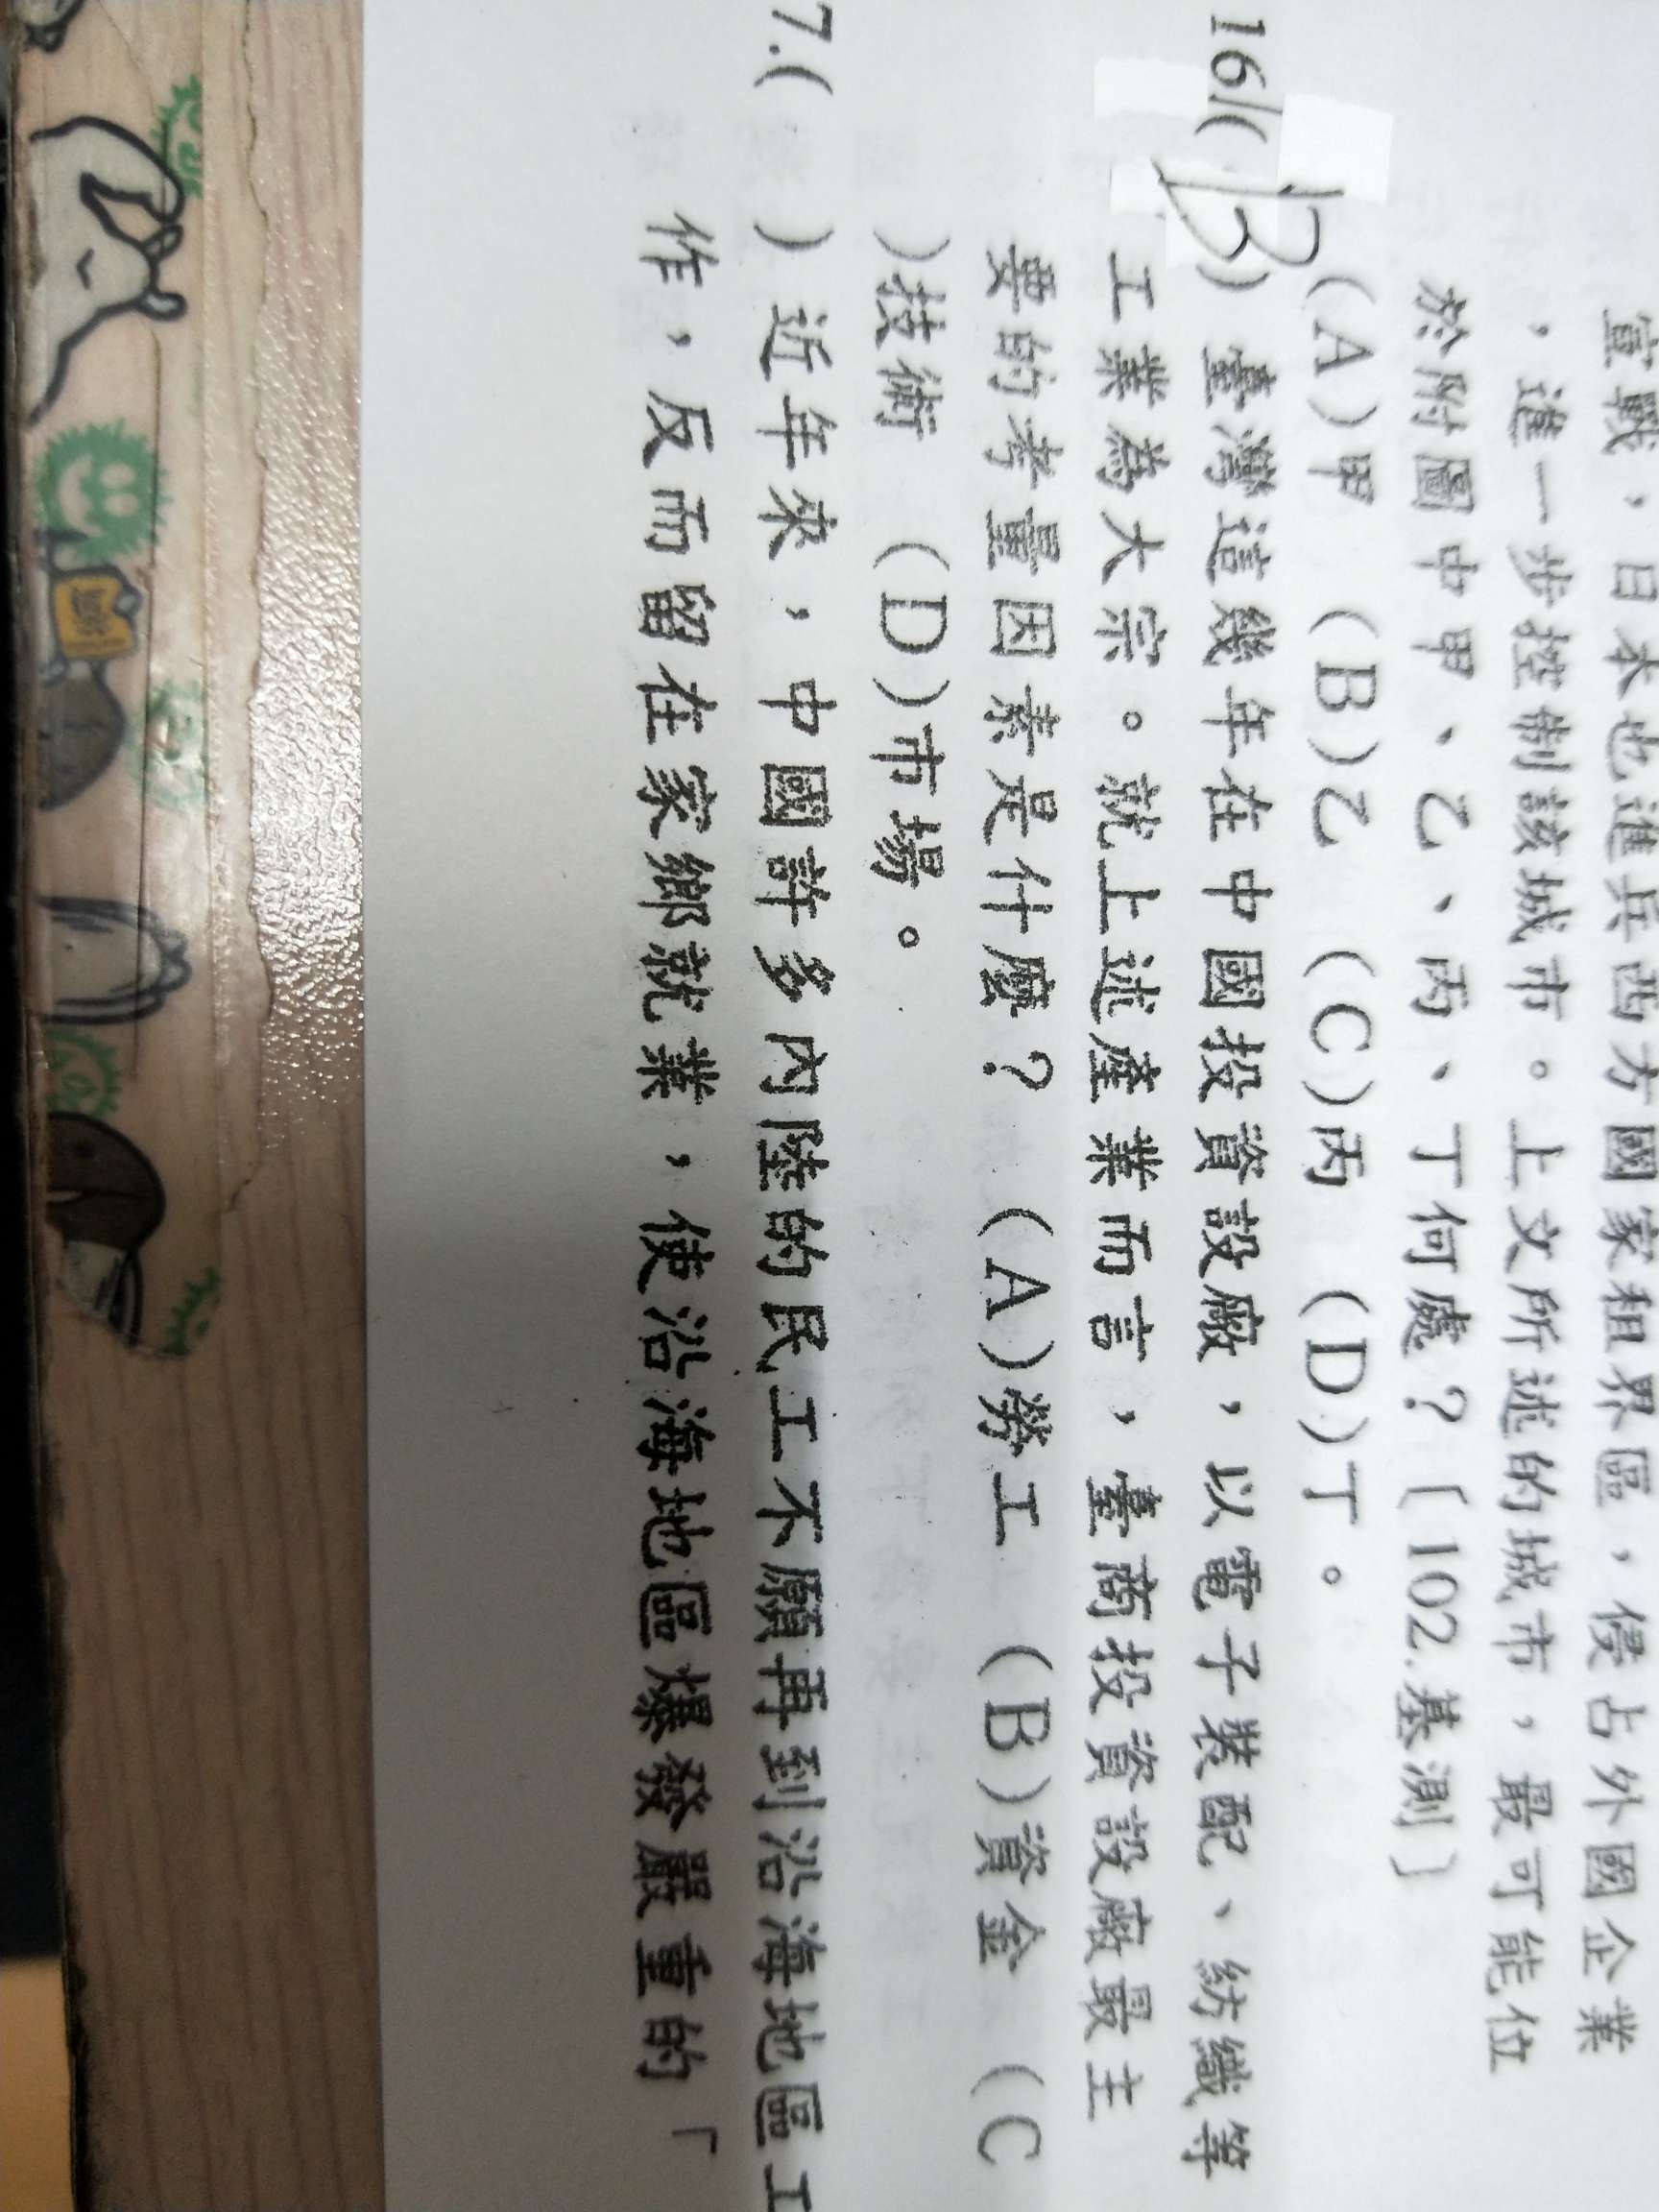 宣戰，日本也進兵西方國家租界區，侵占外國企業
，進一步控制該城市。上文所述的城市，最可能位
於附圖中甲、乙、丙、丁何處？〔102.基測〕
(A)甲 (B)乙 (C)丙 (D)丁。
16.( B ) 臺灣這幾年在中國投資設廠，以電子裝配、紡織等
工業為大宗。就上述產業而言，臺商投資設廠最主
要的考量因素是什麼？ (A)勞工 (B)資金 (C
)技術 (D)市場。
7.( ) 近年來，中國許多內陸的民工不願再到沿海地區工
作，反而留在家鄉就業，使沿海地區爆發嚴重的「